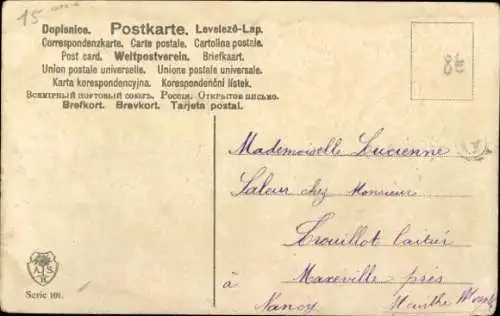 15
Dopisnice. Postkarte. Levelező-Lap.
Correspondenzkarte. Carte postale. Cartolina postale.
Post card. Weltpostverein. Briefkaart.
Union postale universelle. Unione postale universale.
Karta korespondencyjna. Korespondenční lístek.
Всемірный почтовый союзъ. Россія. Открытое письмо.
Brefkort. Brevkort. Tarjeta postal.
Mademoiselle Lucienne
chez Monsieur
Laitier
à Maxeville près
Nancy Meurthe Moselle
A S
Serie 101.